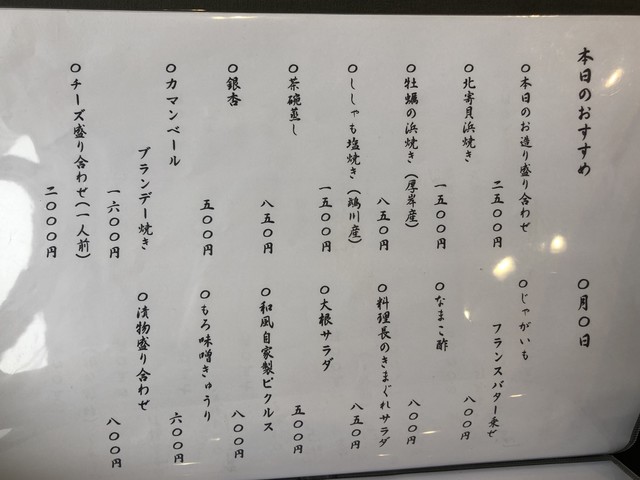 本日のおすすめ
〇月〇日
〇本日のお造り盛り合わせ
二五〇〇円
〇北寄貝浜焼き
一五〇〇円
〇牡蠣の浜焼き（厚岸産）
八五〇円
〇ししゃも塩焼き（鵡川産）
一五〇〇円
〇茶碗蒸し
八五〇円
〇銀杏
五〇〇円
〇カマンベール
ブランデー焼き
一六〇〇円
〇チーズ盛り合わせ（一人前）
二〇〇〇円
〇じゃがいも
フランスバター乗せ
八〇〇円
〇なまこ酢
八〇〇円
〇料理長のきまぐれサラダ
八五〇円
〇大根サラダ
五〇〇円
〇和風自家製ピクルス
八〇〇円
〇もろ味噌きゅうり
六〇〇円
〇漬物盛り合わせ
八〇〇円